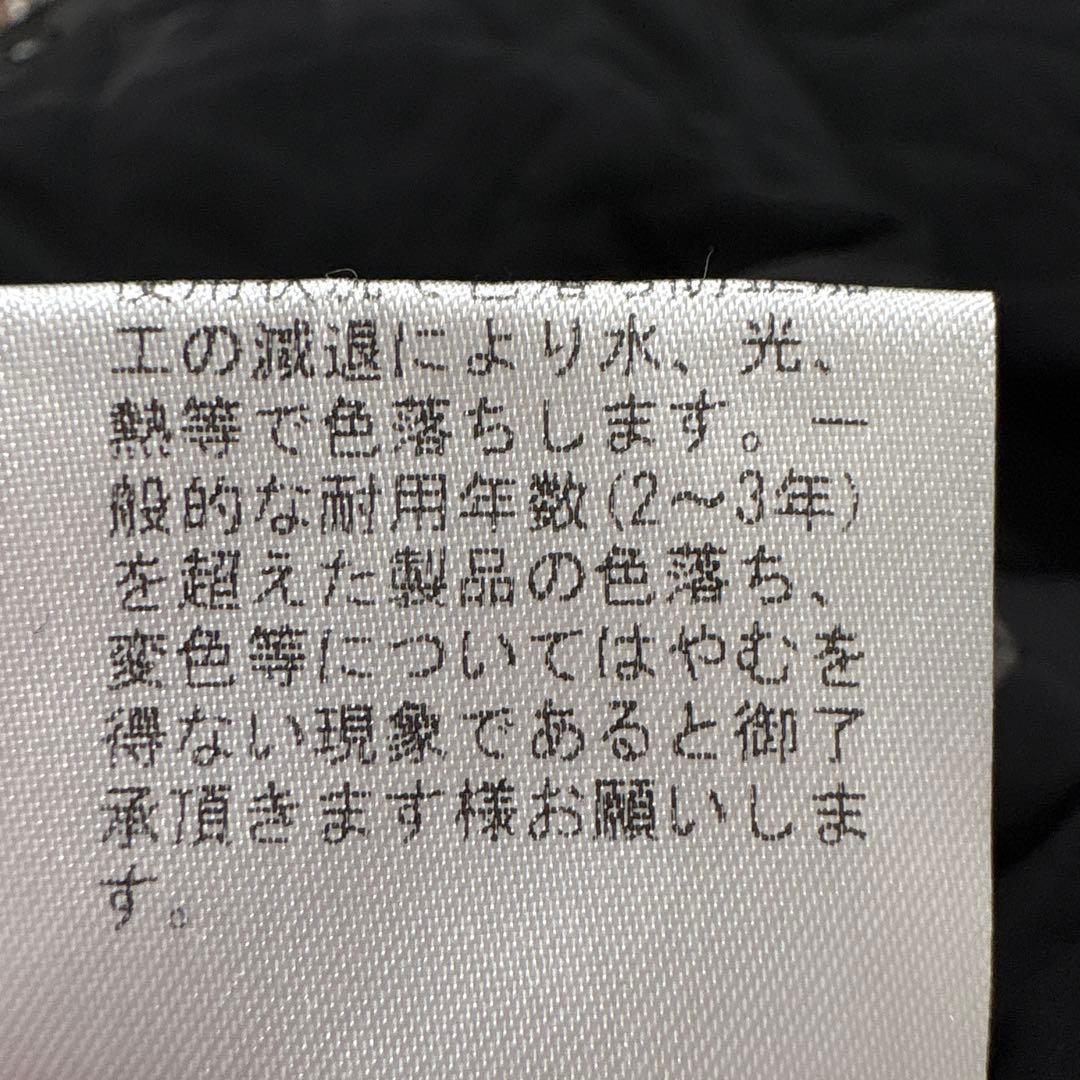 工の減退により水、光、
熱等で色落ちします。一
般的な耐用年数(2〜3年)
を超えた製品の色落ち、
変色等についてはやむを
得ない現象であると御了
承頂きます様お願いしま
す。